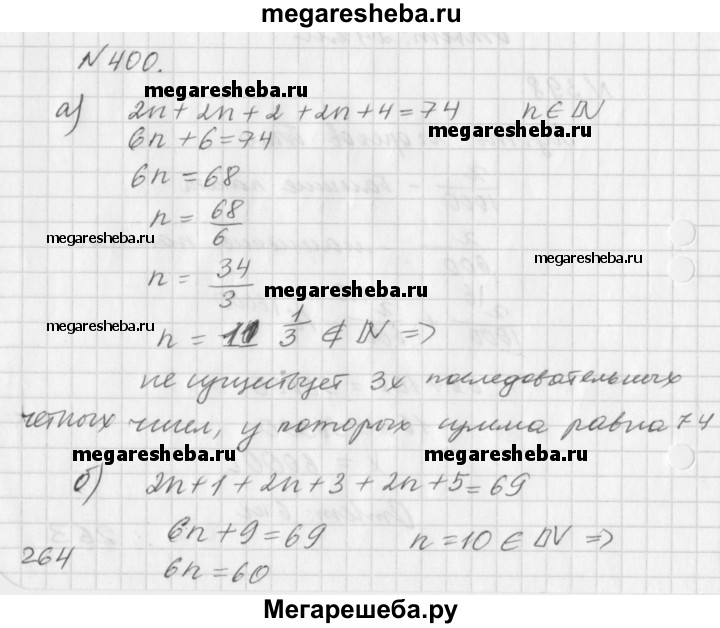 megaresheba.ru
N 400.
megaresheba.ru
а) 2n + 2n + 2 + 2n + 4 = 74 n ∈ N
megaresheba.ru
6n + 6 = 74
6n = 68
n = 68/6
megaresheba.ru
megaresheba.ru
n = 34/3
megaresheba.ru
n = 11 1/3 ∉ N =>
не существует 3х последовательных
четных чисел, у которых сумма равна 74
megaresheba.ru megaresheba.ru
б) 2n + 1 + 2n + 3 + 2n + 5 = 69
6n + 9 = 69 n = 10 ∈ N =>
264
6n = 60
Мегарешеба.ру